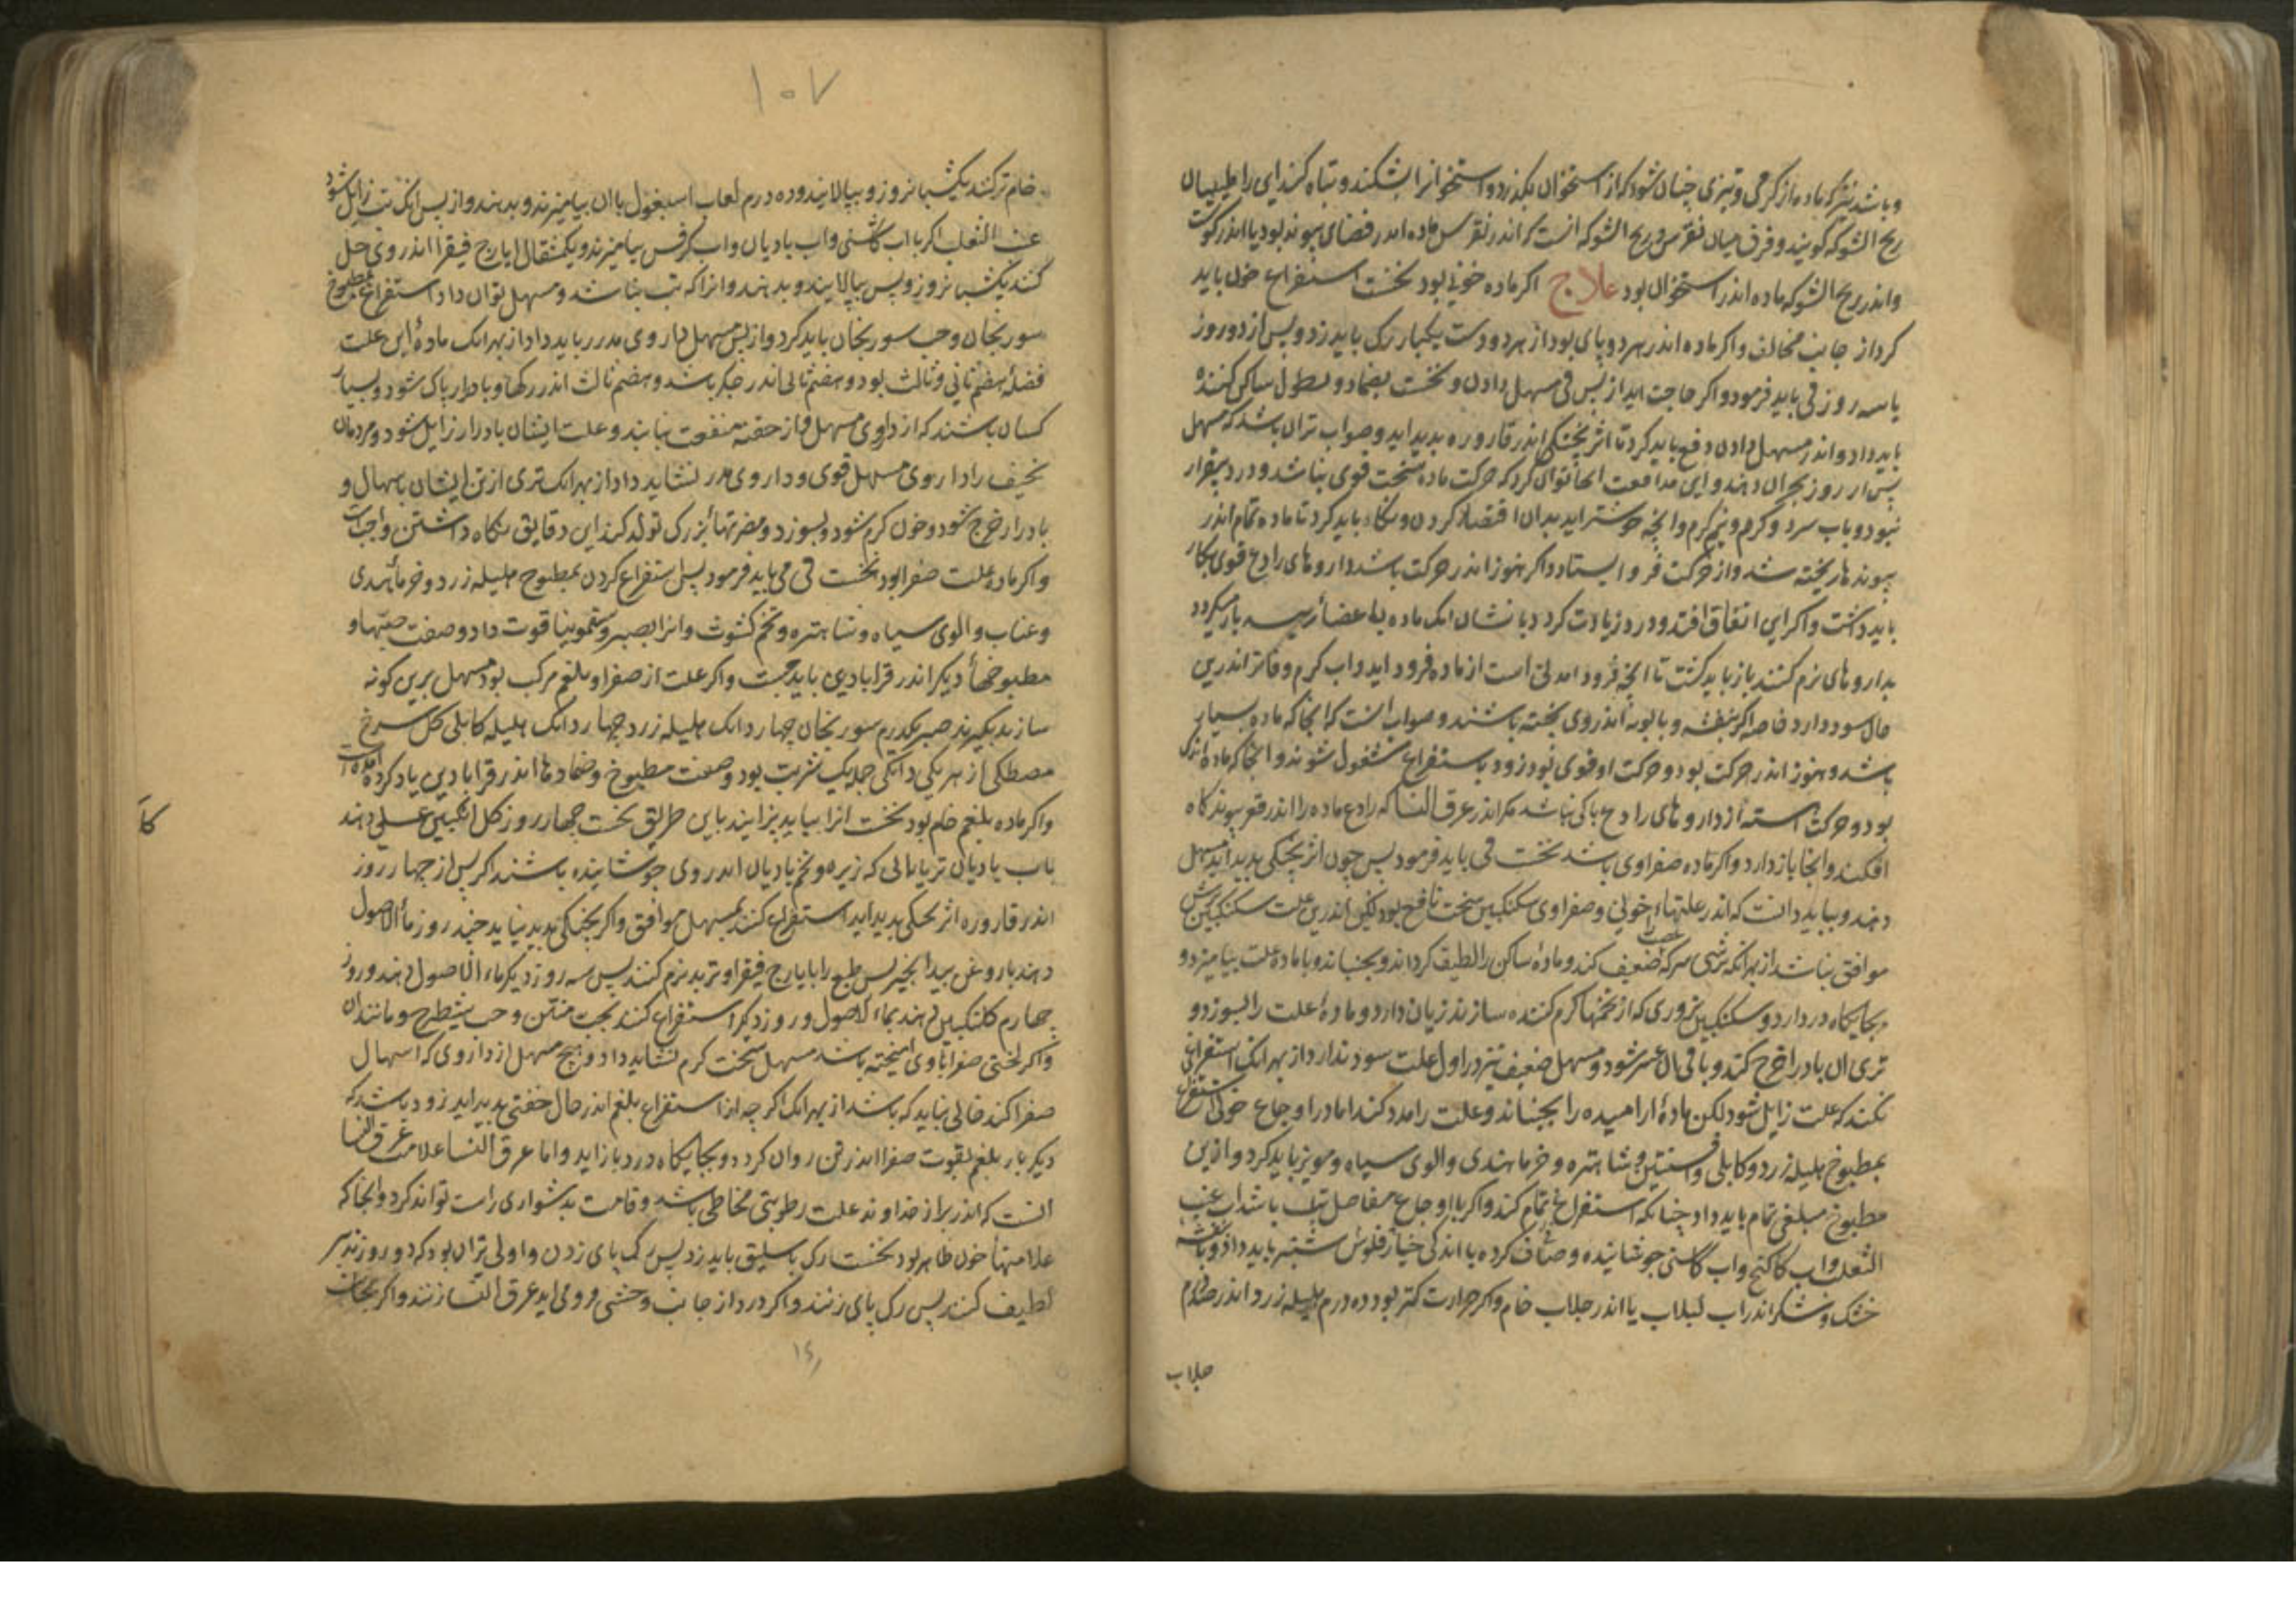 و باشد نیز که ماده از کرمی و تیزی چنان شود که از استخوان بکذرد و استخوانرا بشکند و تباه کند این را طبیبان
ریح الشوکه کویند و فرق میان نقرس و ریح الشوکه انست که اندر نقرس ماده اندر فضای پیوند بود یا اندر کوشت
و اندر ریح الشوکه ماده اندر استخوان بود علاج اکر ماده خونی بود نخست استفراغ خون باید
کرد از جانب مخالف و اکر ماده اندر هر دو پای بود از هر دو دست یکبار رک باید زد و پس از دو روز
یا سه روز قی باید فرمود و اکر حاجت اید از پس قی مسهل دادن و نخست بضماد و بطول ساکن کننده
باید داد و اندر مسهل دادن دفع باید کرد تا اثر پختکی اندر قاروره بدید اید و صواب تر ان باشد که مسهل
پس از روز بحران دهند و این مدافعت انجا توان کرد که حرکت ماده سخت قوی نباشد و درد بیقرار
نبود و باب سرد و کرم و نیم کرم و انچه خوشتر اید بدان اقتصار کردن و نکاه باید کرد تا ماده تمام اندر
پیوندها ریخته شد و از حرکت فرو ایستاد و اکر هنوز اندر حرکت باشد داروهای رادع قوی بکار
باید داشت و اکر این اتفاق افتد و درد زیادت کردد با نشان انک ماده به اعضا رئیسه باز میکردد
بداروهای نرم کننده باز باید کشت تا انچه فرود امدنی است از ماده فرود اید و اب کرم و فاتر اندرین
حال سود دارد خاصه اکر بنفشه و بابونه اندر وی پخته باشند و صواب انست که انجا که ماده بسیار
باشد و هنوز اندر حرکت بود و حرکت او قوی بود زود باستفراغ مشغول شوند و انجا که ماده اندک
بود و حرکت اهسته از داروهای رادع باکی نباشد مکر اندر عرق النسا که رادع ماده را اندر قعر پیوند کاه
افکند و انجا باز دارد و اکر ماده صفراوی باشد نخست قی باید فرمود پس چون اثر پختکی بدید اید مسهل
دهند و بباید دانست که اندر علتهای خونی و صفراوی سکنکبین سخت نافع بود لیکن اندرین علت سکنکبین ترش
موافق نباشد از بهر انکه ترشی سرکه عصب را ضعیف کند و ماده ساکن را لطیف کرداند و بجنباند و با ماده علت بیامیزد و
بجایکاه درد ارد و سکنکبین بزوری که از تخمها کرم کننده سازند زیان دارد و ماده علت را بسوزد و
تری ان بادرار خرج کند و باقی عسر شود و مسهل ضعیف نیز در اول علت سود ندارد از بهر انک استفراغی
نکند که علت زایل شود لکن ماده ارامیده را بجنباند و علت را مدد کند اما در اوجاع خونی استفراغ
بمطبوخ هلیله زرد و کابلی و افسنتین و شاهتره و خرما هندی و الوی سیاه و مویز باید کرد و ازین
مطبوخ مبلغی تمام باید داد چنانکه استفراغ تمام کند و اکر با اوجاع مفاصل تب باشد اب عنب
الثعلب و اب کاکنج و اب کاسنی جوشانیده و صاف کرده با اندکی خیار فلوس شنبر باید داد و بنفشه
خشک و شکر اندر اب لبلاب یا اندر جلاب خام و اکر حرارت کمتر بود ده درم هلیله زرد اندر صد درم
جلاب
۱۰۷
خام تر کنند یکشبانروز و بپالایند و ده درم لعاب اسبغول با ان بیامیزند و بدهند و از پس انک تب زایل شود
عنب الثعلب اکر با اب کاسنی و اب بادیان و اب کرفس بیامیزند و یکمثقال ایارج فیقرا اندر وی حل
کنند یکشبانروز و پس بپالایند و بدهند و انرا که تب نباشد و مسهل توان داد استفراغ بمطبوخ
سورنجان و حب سورنجان باید کرد و از پس مسهل داروی مدرر باید داد از بهر انک ماده این علت
فضله هضم ثانی و ثالث بود و هضم ثانی اندر جکر باشد و هضم ثالث اندر رکها و بادرار پاک شود و بسیار
کسان باشند که از داروی مسهل و از حقنه منفعت نیابند و علت ایشان بادرار زایل شود و مردمان
نحیف را داروی مسهل قوی و داروی مدرر نشاید داد از بهر انک تری از تن ایشان باسهال و
بادرار خرج شود و خون کرم شود و بسوزد و مضرتها بزرک تولد کند این دقایق نکاه داشتن واجب است
و اکر ماده علت صفرا بود نخست قی می باید فرمود پس استفراغ کردن بمطبوخ هلیله زرد و خرما هندی
و عناب و الوی سیاه و شاهتره و تخم کشوث و انرا بصبر و سقمونیا قوت داد و صفت حبها و
مطبوخها دیکر اندر قرابادین باید جست و اکر علت از صفرا و بلغم مرکب بود مسهل برین کونه
سازند بکیرند صبر یکدرم سورنجان چهار دانک هلیله زرد چهار دانک هلیله کابلی کل سرخ
مصطکی از هر یکی دانکی جمله یک شربت بود و صفت مطبوخ و ضمادها اندر قرابادین یاد کرده امده است
و اکر ماده بلغم خام بود نخست انرا بباید پزانید باین طریق نخست چهار روز کل انکبین عسلی دهند
باب بادیان تر یا بابی که زیره و تخم بادیان اندر وی جوشانیده باشند اکر پس از چهار روز
اندر قاروره اثر پختکی بدید اید استفراغ کنند بمسهل موافق و اکر پختکی بدید نیاید چند روز ماء الاصول
دهند با روغن بید انجیر پس طبع را بایارج فیقرا و تربد نرم کنند پس سه روز دیکر ماء الاصول دهند و روز
چهارم کلنکبین دهند بماء الاصول و روز دیکر استفراغ کنند بحب منتن و حب شیطرج و مانند ان
و اکر لختی صفرا باوی امیخته باشد مسهل سخت کرم نشاید داد و هیچ مسهل از داروی که اسهال
صفرا کند خالی نباید که باشد از بهر انک اکر چه از استفراغ بلغم اندر حال خفتی بدید اید زود باشد که
دیکر بار بلغم بقوت صفرا اندر تن روان کردد و بجایکاه درد باز اید و اما عرق النسا علامت عرق النسا
انست که اندر براز خداوند علت رطوبتی مخاطی باشد و قامت بدشواری راست تواند کرد و انجا که
علامتها خون ظاهر بود نخست رک باسلیق باید زد پس رک پای زدن و اولی تر ان بود که دو روز تدبیر
لطیف کنند پس رک پای زنند و اکر درد از جانب وحشی فرو می اید عرق النسا زنند و اکر بجانب